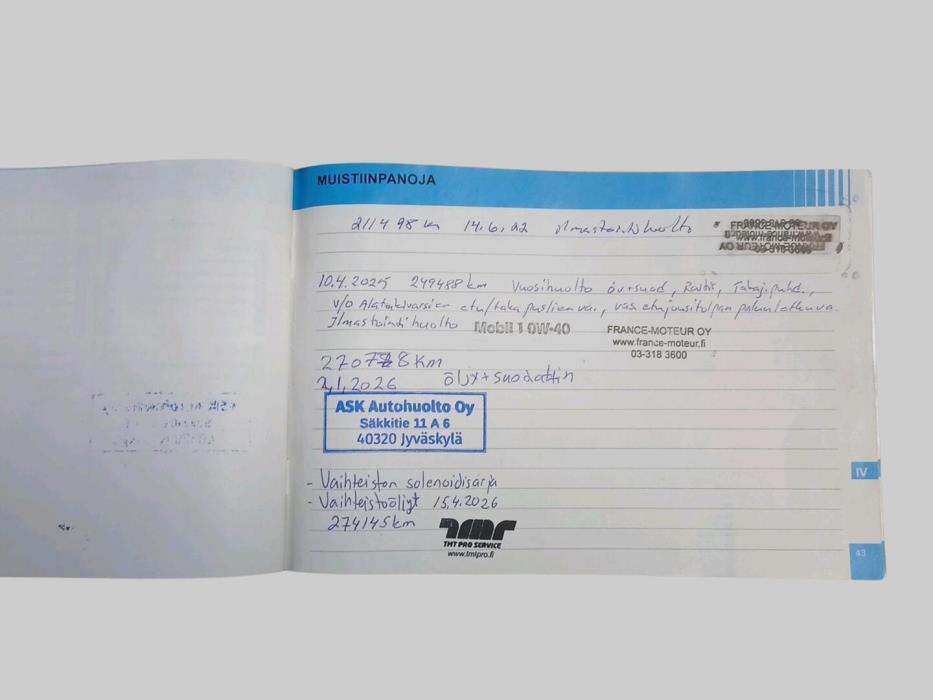 MUISTIINPANOJA
211498 km 14.6.22 ilmastointihuolto
FRANCE-MOTEUR OY
www.france-moteur.fi
10.4.2025 249488km Vuosihuolto öv+suod, Raitis,
v/o Alatukivarsien etu/taka puslien va., vas etujousitolpan
Ilmastointihuolto Mobil 1 0W-40 FRANCE-MOTEUR OY
www.france-moteur.fi
03-318 3600
8km
2.1.2026 öljy+suodattin
ASK Autohuolto Oy
Säkkitie 11 A 6
40320 Jyväskylä
- Vaihteiston solenoidisarja
- Vaihteistoöljyt 15.4.2026
274145km
TMT PRO SERVICE
IV
43